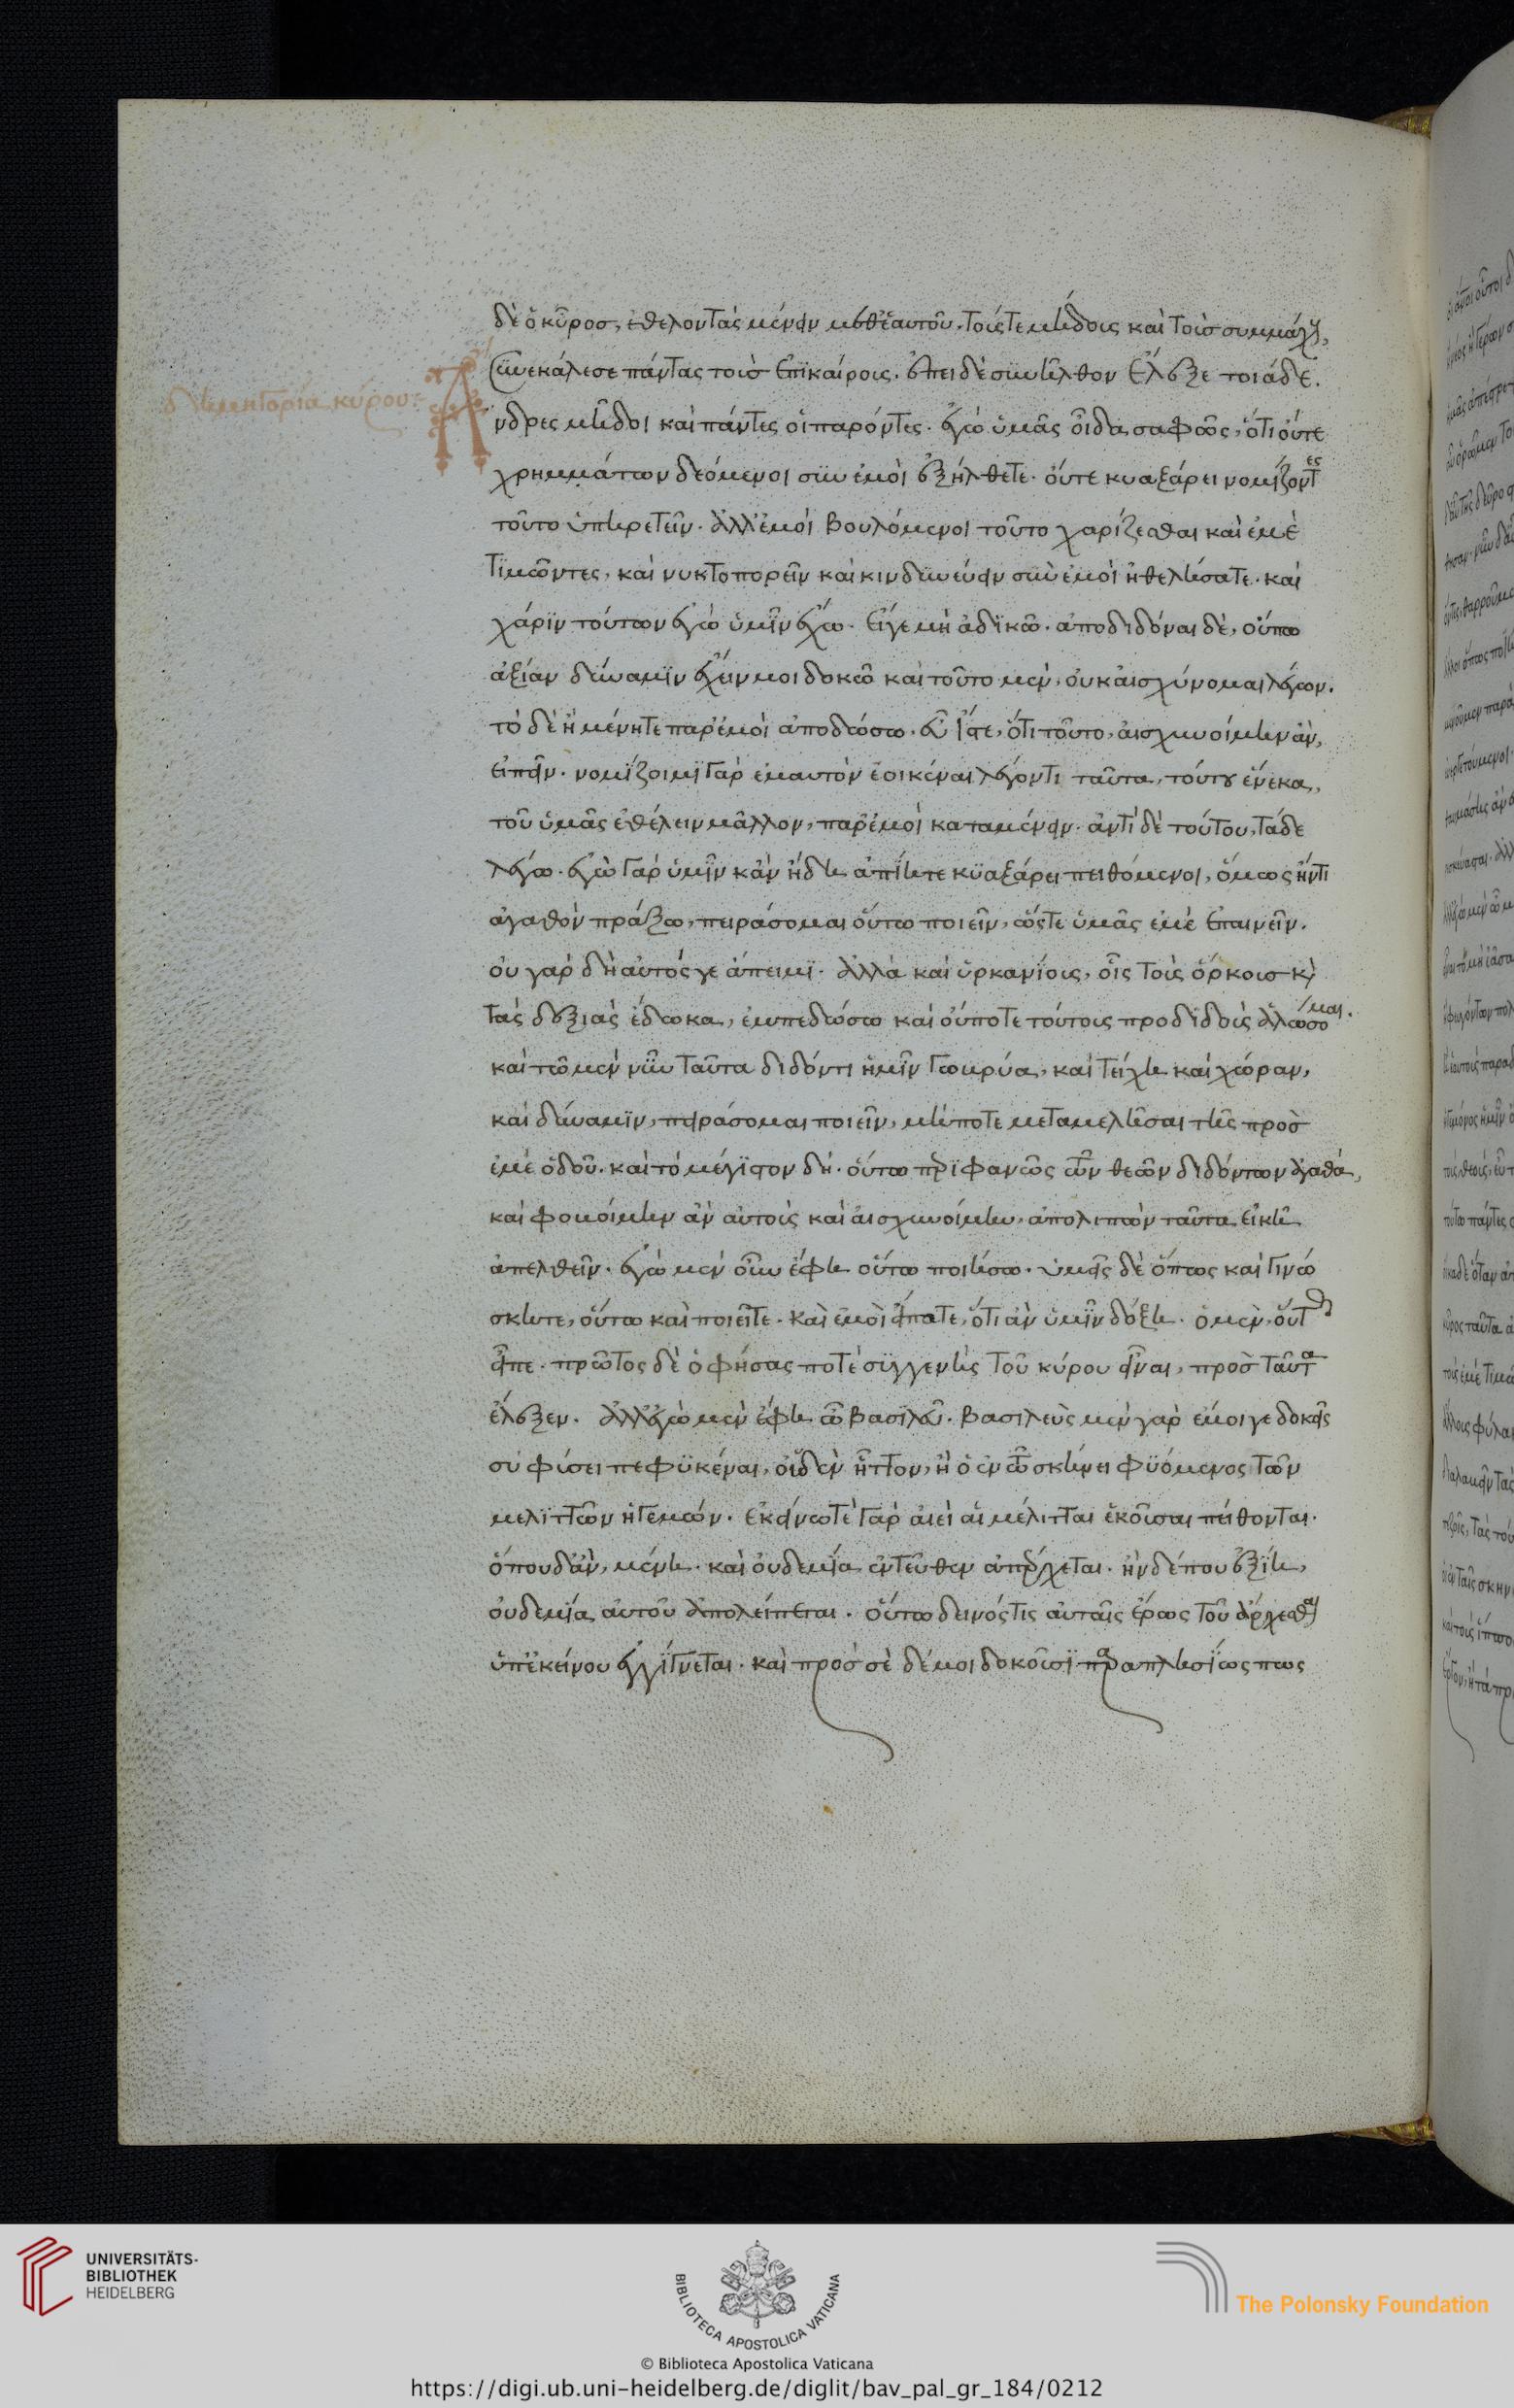 δημηγορία κύρου:
δὲ ὁ κῦρος, ἐθελοντὰς μένειν μεθ' ἑαυτοῦ. τοῖς τε μήδοις καὶ τοῖς συμμάχοις,
συνεκάλεσε πάντας τοὺς ἐπικαίρους. ἐπεὶ δὲ συνῆλθον ἔλεξε τοιάδε.
Ἄνδρες μῆδοι καὶ πάντες οἱ παρόντες. ἐγὼ ὑμᾶς οἶδα σαφῶς, ὅτι οὔτε
χρημμάτων δεόμενοι σὺν ἐμοὶ ἐξήλθετε. οὔτε κυαξάρει νομίζοντες
τοῦτο ὑπηρετεῖν. ἀλλ' ἐμοὶ βουλόμενοι τοῦτο χαρίζεσθαι καὶ ἐμὲ
τιμῶντες, καὶ νυκτοπορεῖν καὶ κινδυνεύειν σὺν ἐμοὶ ἠθελήσατε. καὶ
χάριν τούτων ἐγὼ ὑμῖν ἔχω. εἴγε μὴ ἀδικῶ. ἀποδιδόναι δὲ, οὔπω
ἀξίαν δύναμιν ἔχειν μοι δοκῶ καὶ τοῦτο μὲν, οὐκ αἰσχύνομαι λέγων.
τὸ δὲ ἢν μένητε παρ' ἐμοὶ ἀποδώσω. εὖ ἴστε, ὅτι τοῦτο, αἰσχυνοίμην ἂν,
εἰπεῖν. νομίζοιμι γὰρ ἐμαυτὸν ἐοικέναι λέγοντι ταῦτα, τούτου ἕνεκα,
τοῦ ὑμᾶς ἐθέλειν μᾶλλον, παρ' ἐμοὶ καταμένειν. ἀντὶ δὲ τούτου, τάδε
λέγω. ἐγὼ γὰρ ὑμῖν κἂν ἤδη ἀπίητε κυαξάρει πειθόμενοι, ὅμως ἤν τι
ἀγαθὸν πράξω, πειράσομαι οὕτω ποιεῖν, ὥστε ὑμᾶς ἐμὲ ἐπαινεῖν.
οὐ γὰρ δὴ αὐτός γε ἄπειμι. ἀλλὰ καὶ ὑρκανίοις, οἷς τοὺς ὅρκους καὶ
τὰς δεξιὰς ἔδωκα, ἐμπεδώσω καὶ οὔποτε τούτους προδιδοὺς ἁλώσομαι.
καὶ τῶ μὲν νῦν ταῦτα διδόντι ἡμῖν γωβρύα, καὶ τείχη καὶ χώραν,
καὶ δύναμιν, πειράσομαι ποιεῖν, μήποτε μεταμελῆσαι τῆς πρὸς
ἐμὲ ὁδοῦ. καὶ τὸ μέγιστον δή. οὕτω περιφανῶς τῶν θεῶν διδόντων ἀγαθὰ,
καὶ φοβοίμην ἂν αὐτοὺς καὶ αἰσχυνοίμην, ἀπολιπὼν ταῦτα εἰκῆ
ἀπελθεῖν. ἐγὼ μὲν οὖν ἔφη οὕτω ποιήσω. ὑμεῖς δὲ ὅπως καὶ γινώ
σκητε, οὕτω καὶ ποιεῖτε. καὶ ἐμοὶ εἴπατε, ὅτι ἂν ὑμῖν δόξη. ὁ μὲν, οὕτως
εἶπε. πρῶτος δὲ ὁ φήσας ποτὲ συγγενὴς τοῦ κύρου εἶναι, πρὸς ταῦτα
ἔλεξεν. ἀλλ' ἐγὼ μὲν ἔφη ὦ βασιλεῦ. βασιλεὺς μὲν γὰρ ἔμοιγε δοκεῖς
σὺ φύσει πεφυκέναι, οὐδὲν ἧττον, ἢ ὁ ἐν τῶ σκήνει φυόμενος τῶν
μελιττῶν ἡγεμών. ἐκείνω τὲ γὰρ ἀιεὶ αἱ μέλιτται ἑκοῦσαι πείθονται.
ὅπου δ' ἂν, μένη. καὶ οὐδεμία ἐντεῦθεν ἀπέρχεται. ἢν δέ που ἐξίη,
οὐδεμία αὐτοῦ ἀπολείπεται. οὕτω δεινός τις αὐταῖς ἔρως τοῦ ἄρχεσθαι
ὑπ' ἐκείνου ἐγγίγνεται. καὶ πρὸς σὲ δέ μοι δοκοῦσι παραπλησίως πως
UNIVERSITÄTS-
BIBLIOTHEK
HEIDELBERG
BIBLIOTECA APOSTOLICA VATICANA
The Polonsky Foundation
© Biblioteca Apostolica Vaticana
https://digi.ub.uni-heidelberg.de/diglit/bav_pal_gr_184/0212